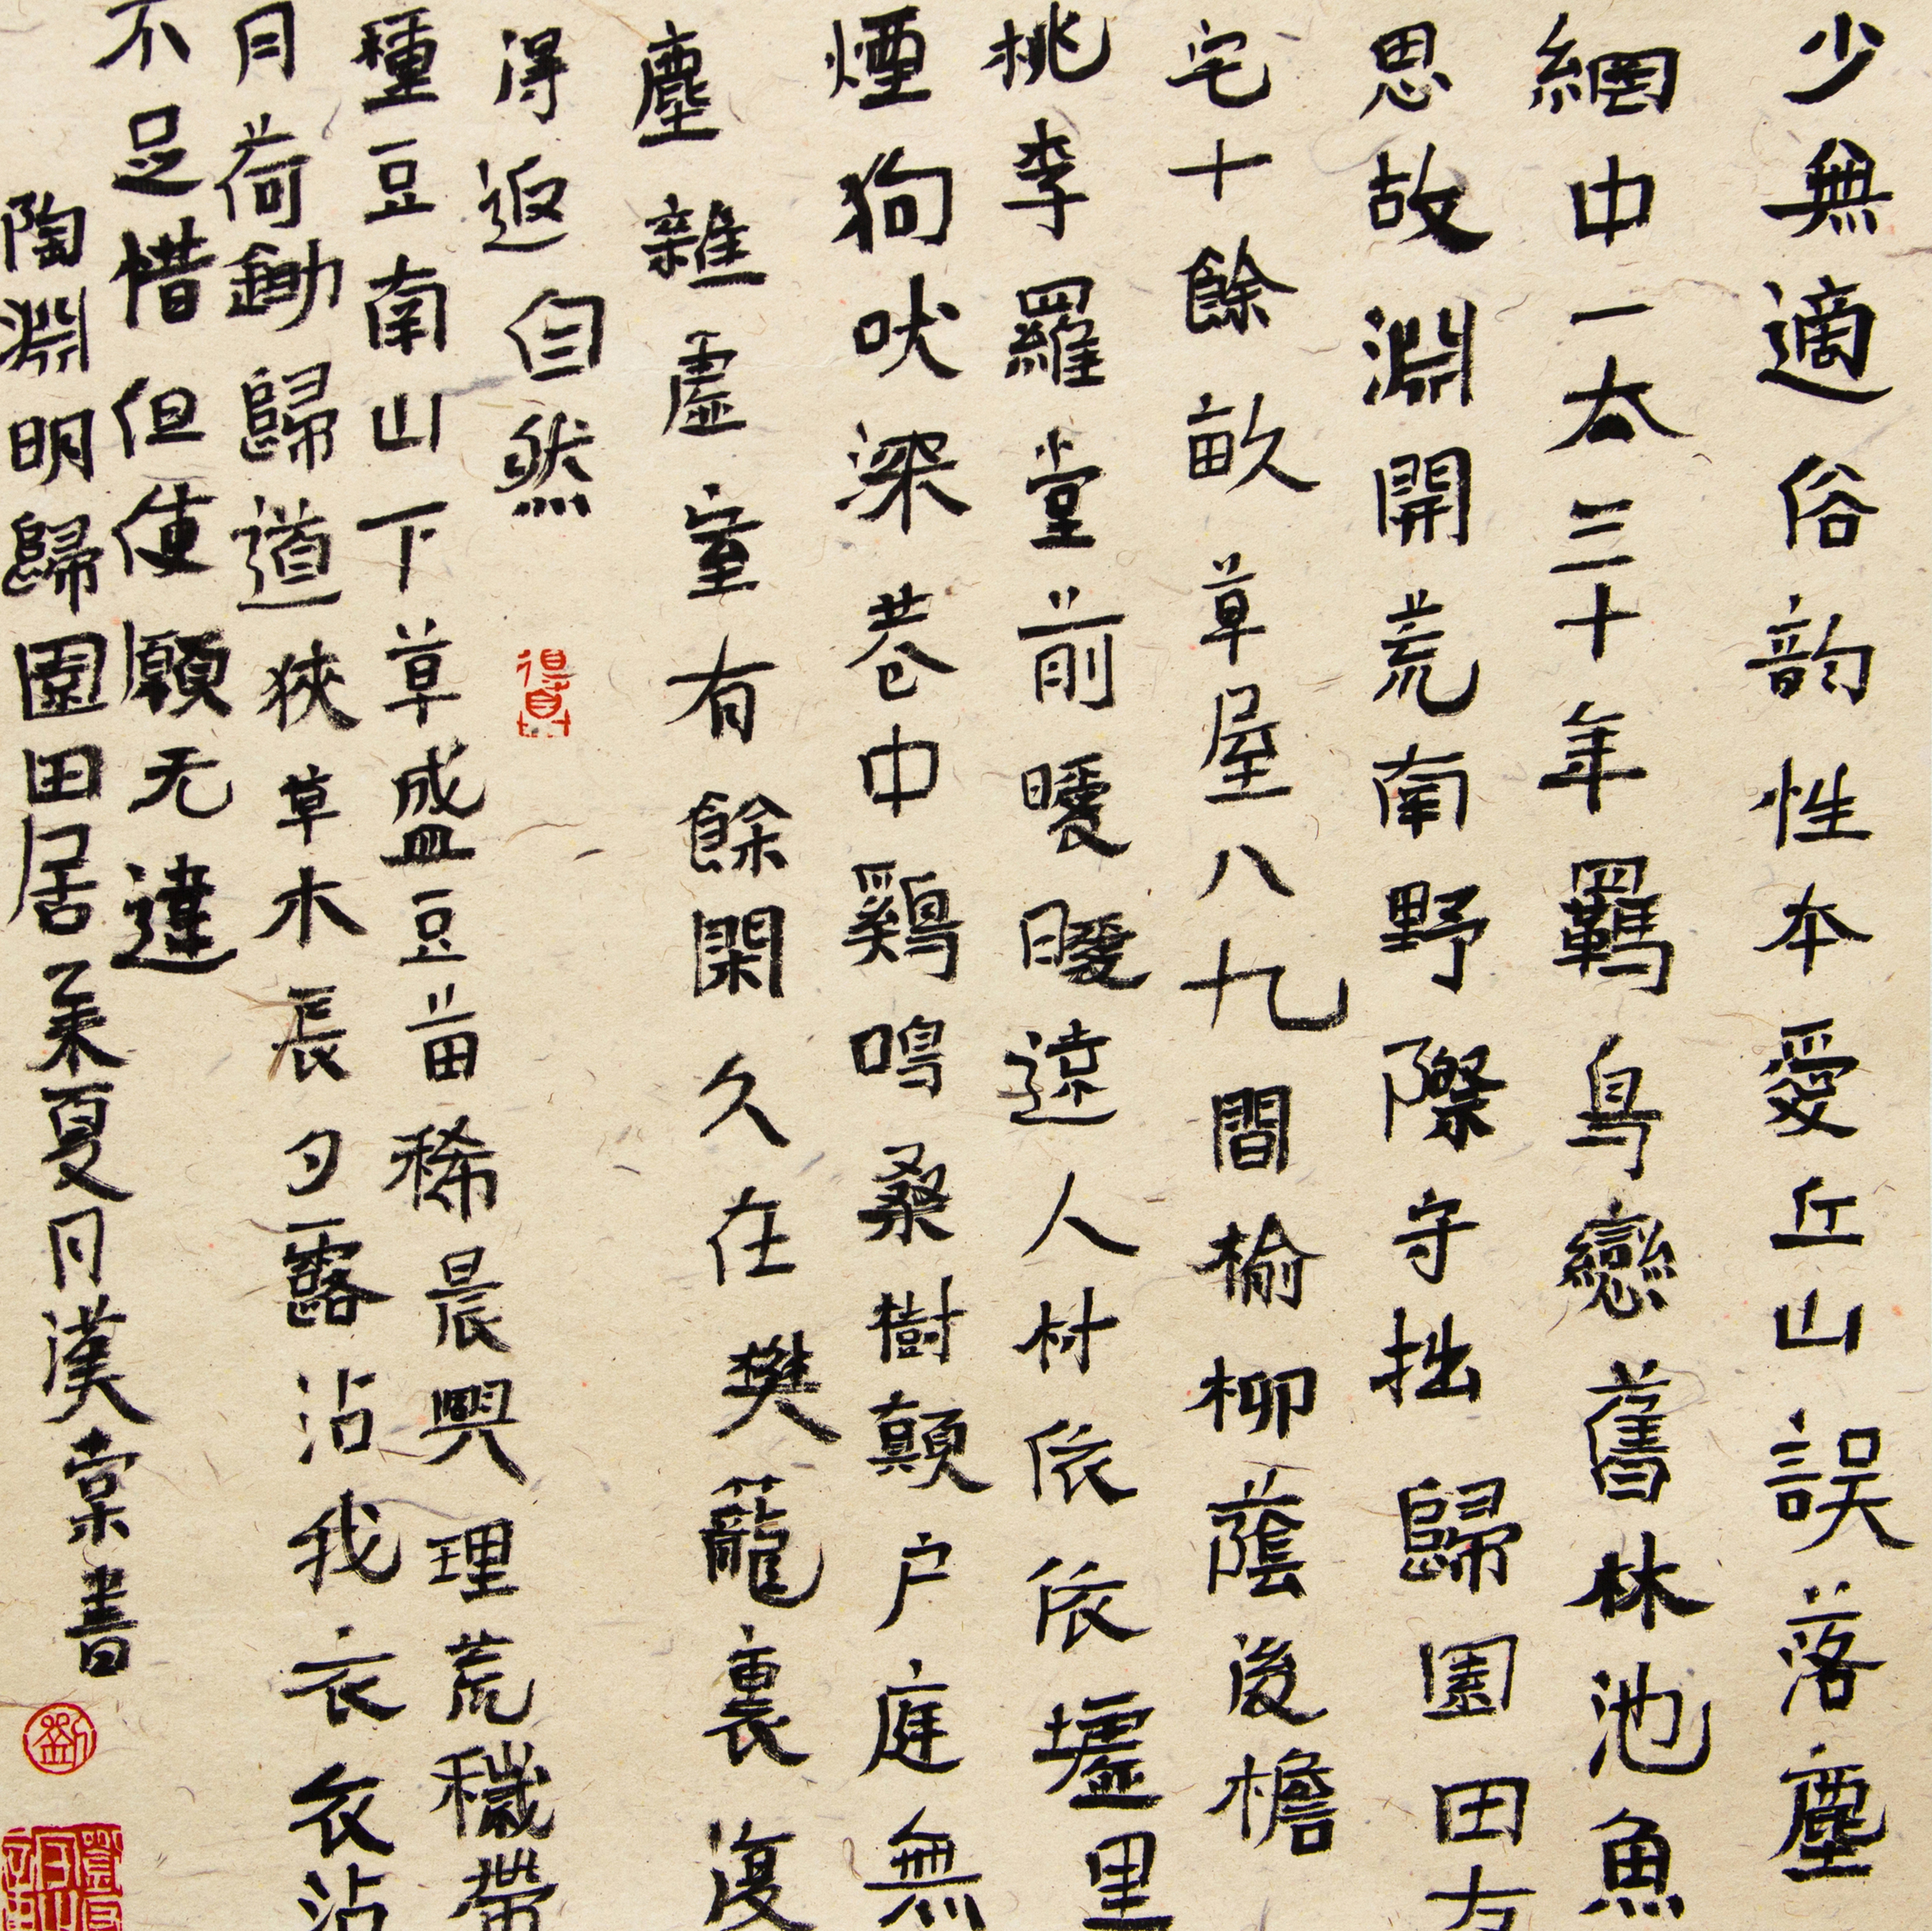 少無適俗韵性本愛丘山誤落塵
網中一去三十年羈鳥戀舊林池魚
思故淵開荒南野際守拙歸園田方
宅十餘畝草屋八九間榆柳蔭後檐
桃李羅堂前曖曖遠人村依依墟里
煙狗吠深巷中鷄鳴桑樹顛户庭無
塵雜虛室有餘閑久在樊籠裏復
得返自然
種豆南山下草盛豆苗稀晨興理荒穢帶
月荷鋤歸道狹草木長夕露沾我衣衣沾
不足惜但使願无違
陶淵明歸園田居 夏月漢棠書